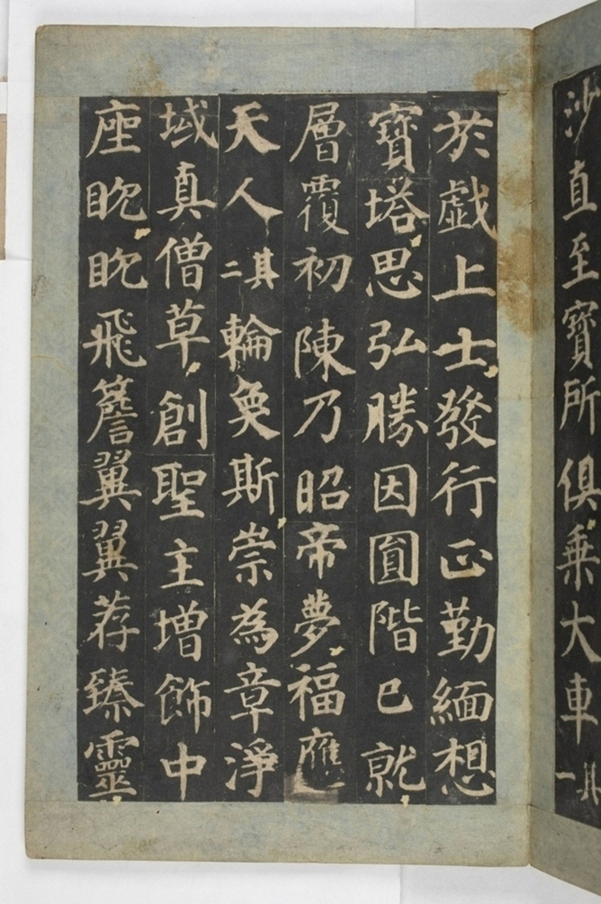 沙直至寶所俱乗大車其一
於戯上士發行正勤緬想
寶塔思弘勝因圎階已就
層覆初陳乃昭帝夢福應
天人其二輪奐斯崇為章淨
域真僧草創聖主増飾中
座眈眈飛簷翼翼荐臻靈